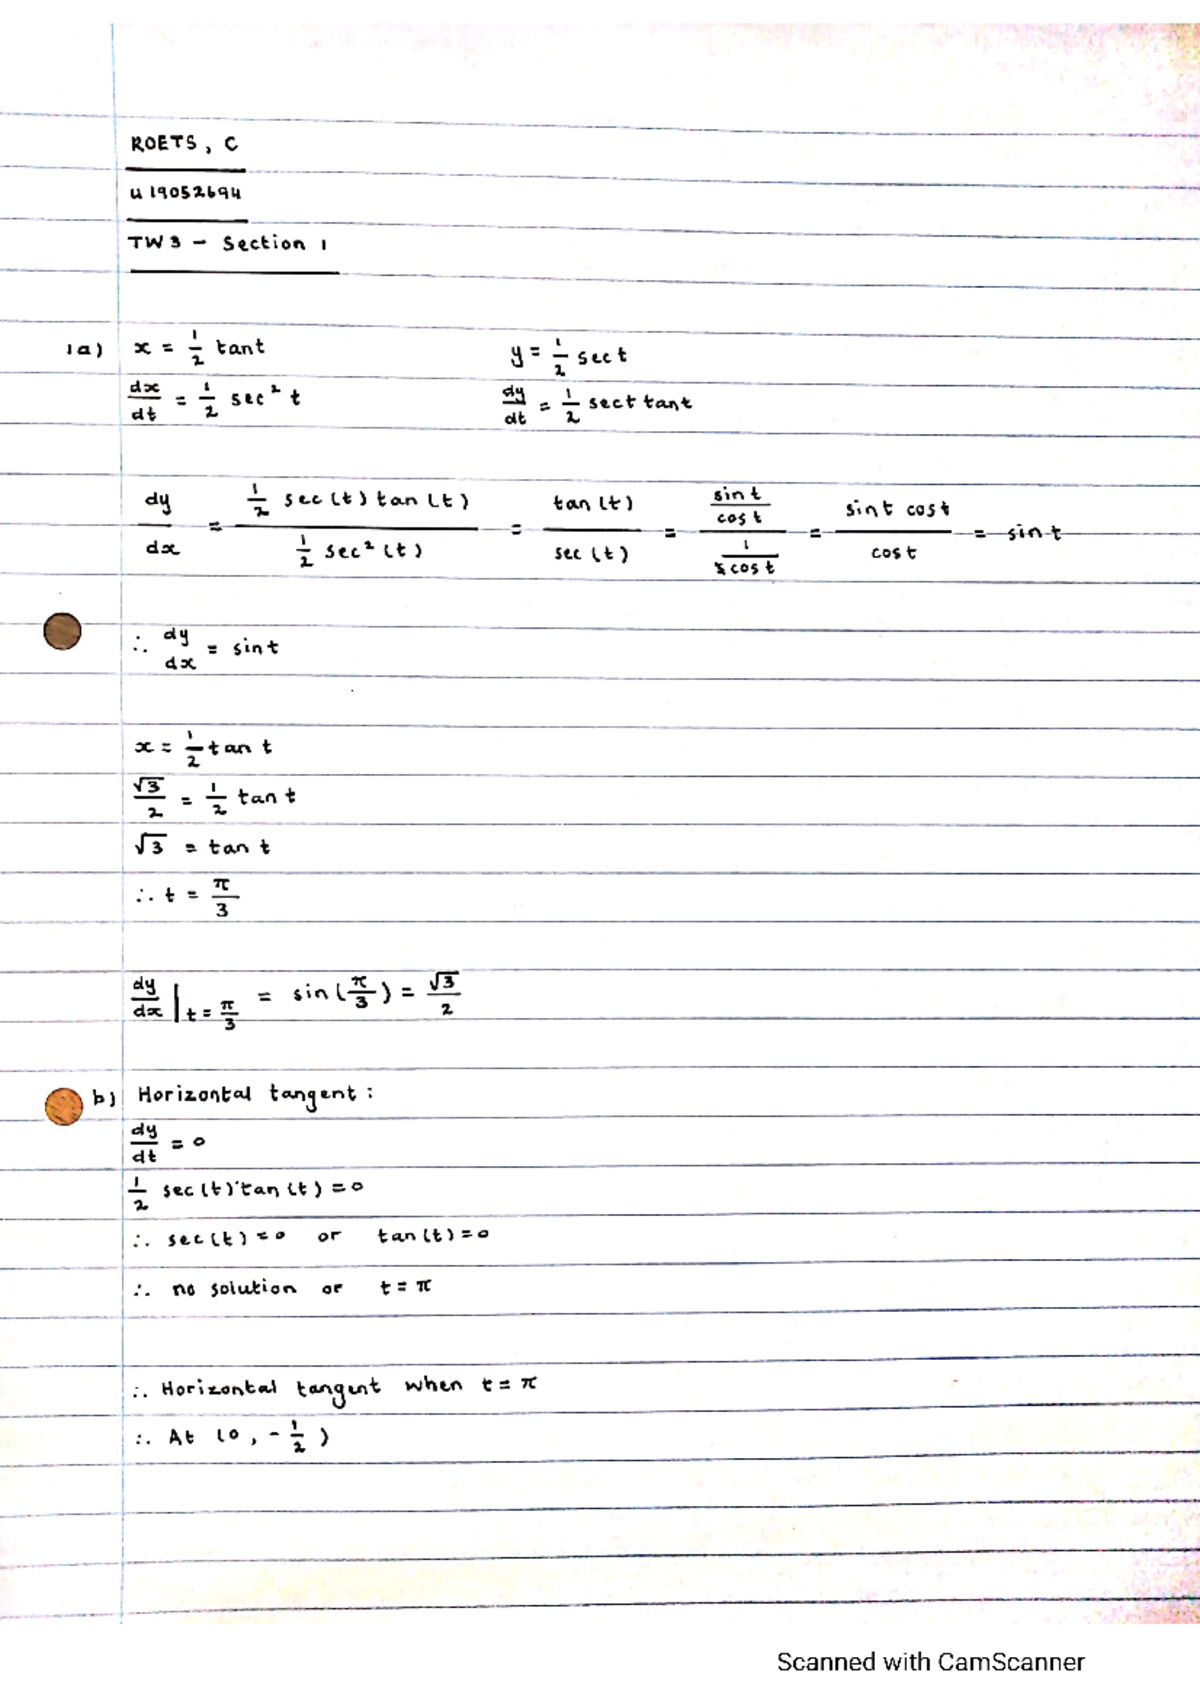 ROETS, C
u 19052694
TW3 - Section 1
1a) x = 1/2 tant y = 1/2 sect
dx/dt = 1/2 sec² t dy/dt = 1/2 sect tant
dy/dx = (1/2 sec(t) tan(t))/(1/2 sec²(t)) = tan(t)/sec(t) = (sint/cost)/(1/cost) = sint cost/cost = sint
∴ dy/dx = sint
x = 1/2 tan t
√3/2 = 1/2 tan t
√3 = tan t
∴ t = π/3
dy/dx |t = π/3 = sin(π/3) = √3/2
b) Horizontal tangent :
dy/dt = 0
1/2 sec(t) tan(t) = 0
∴ sec(t) = 0 or tan(t) = 0
∴ no solution or t = π
∴ Horizontal tangent when t = π
∴ At (0, -1/2)
Scanned with CamScanner